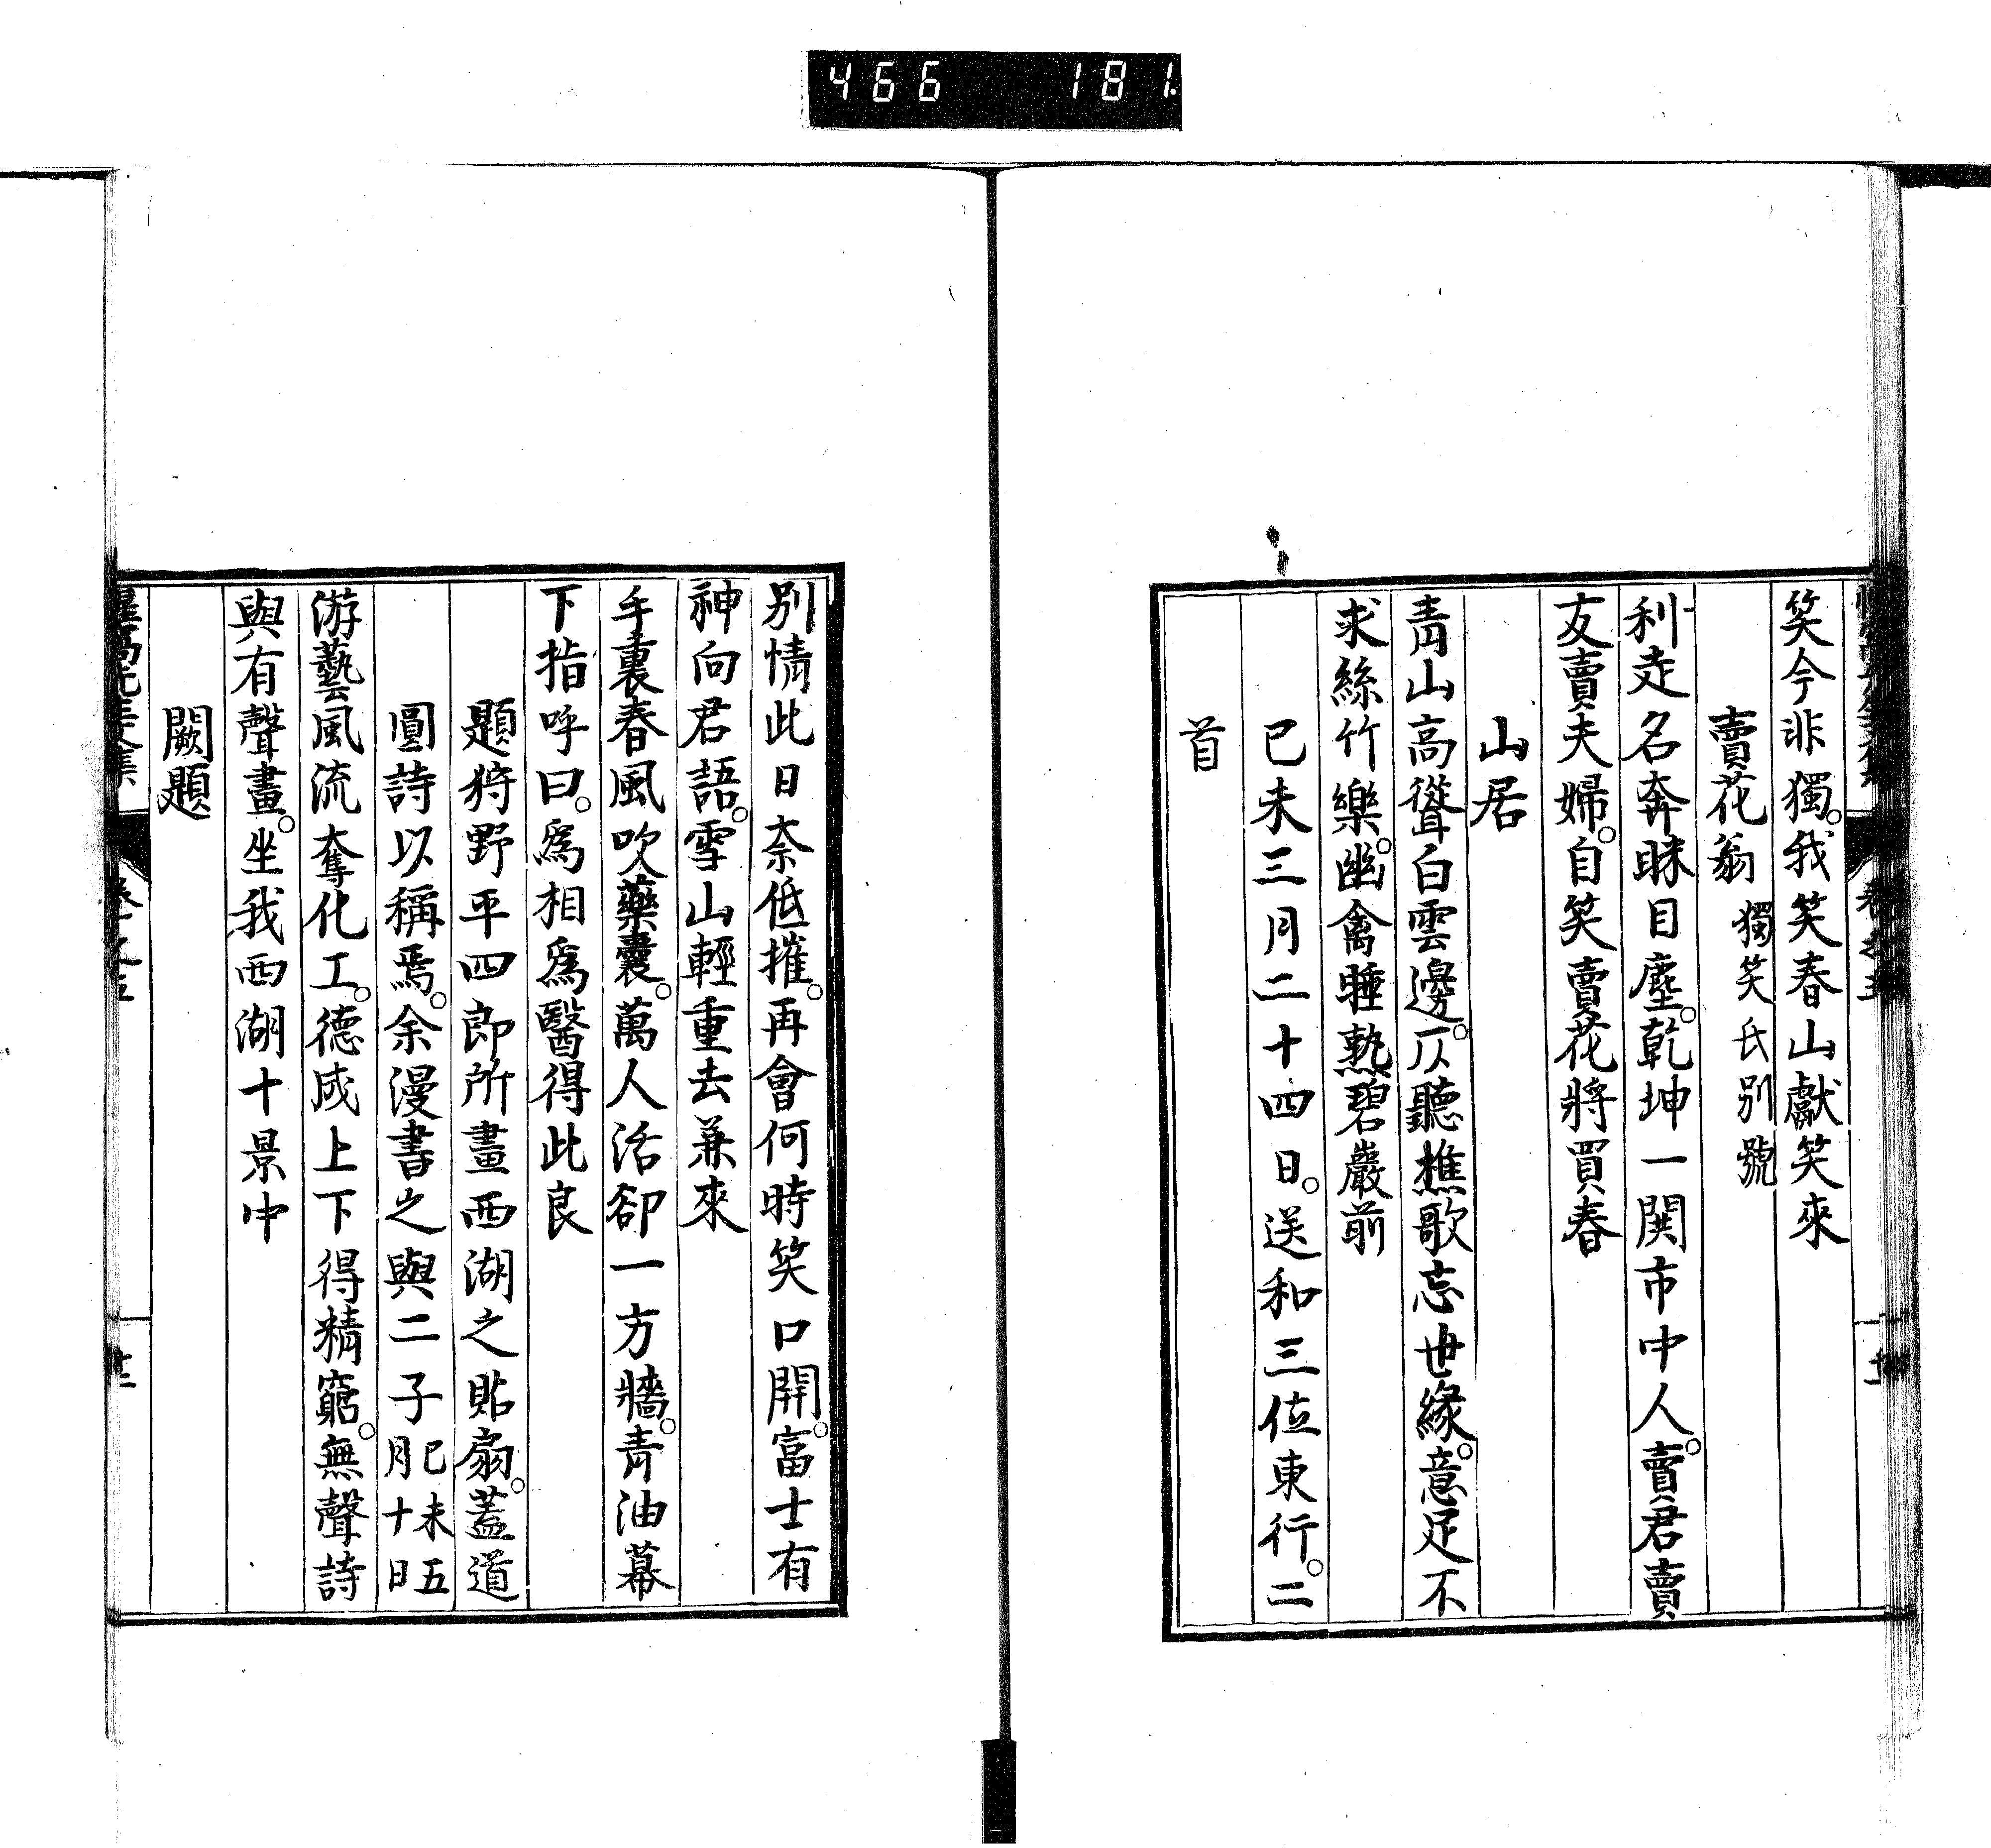 466 181.
笑今非獨。我笑春山獻笑來
賣花翁 獨笑氏別號
利走名奔眯目塵。乾坤一閧市中人。賣君賣
友賣夫婦。自笑賣花將買春
山居
青山高聳白雲邊。仄聽樵歌忘世緣。意足不
求絲竹樂。幽禽睡熟碧巖前
己未三月二十四日。送和三位東行。二
首
別情此日奈低摧。再會何時笑口開。富士有
神向君語。雪山輕重去兼來
手裏春風吹藥囊。萬人活卻一方牆。青油幕
下指呼曰。爲相爲醫得此良
題狩野平四郎所畫西湖之貼扇。蓋道
圓詩以稱焉。余漫書之與二子 己未五月十日
游藝風流奪化工。德成上下得精窮。無聲詩
與有聲畫。坐我西湖十景中
闕題